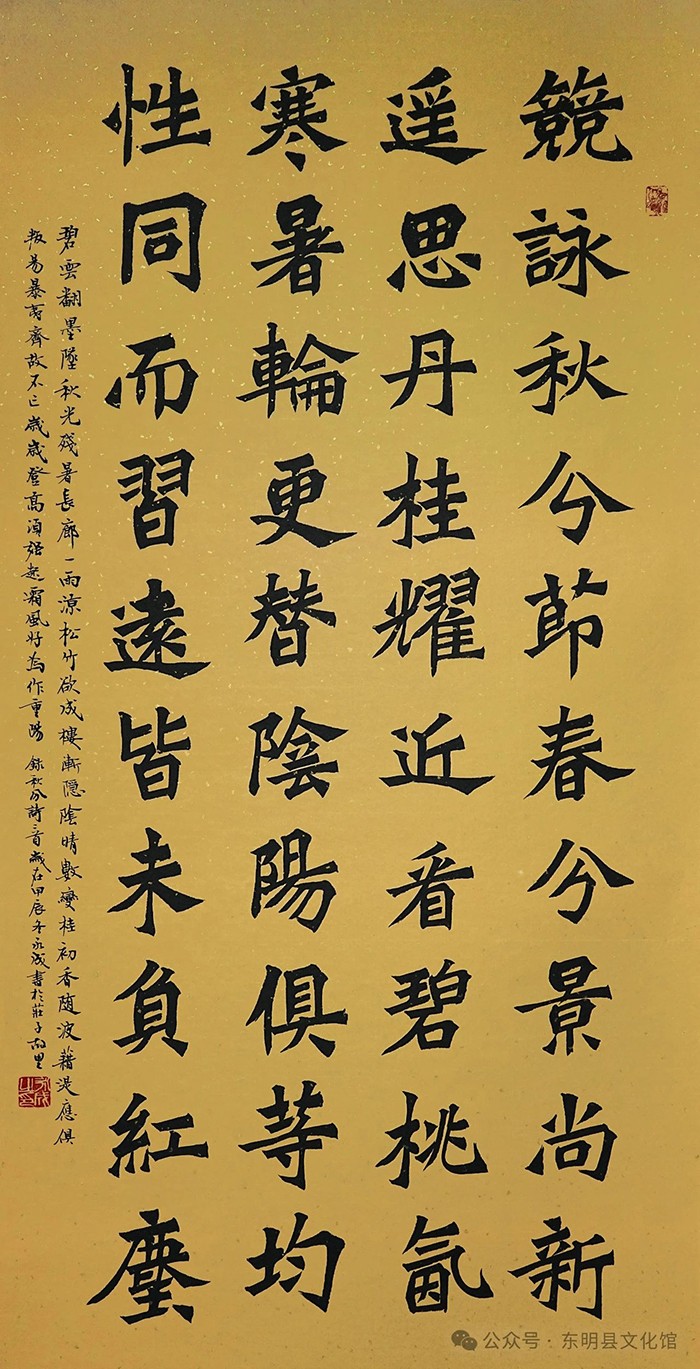 競詠秋兮節春兮景尚新
遥思丹桂耀近看碧桃氤
寒暑輪更替陰陽俱等均
性同而習遠皆未負紅塵
碧雲翻墨墜秋光殘暑長廊一雨凉松竹欲成樓漸隱陰晴數變桂初香随波藕浞應俱
故不亡歲歲登高須起霜風好為作重陽 録秋分詩二首歲在甲辰冬永成書於莊子故里
公众号·东明县文化馆